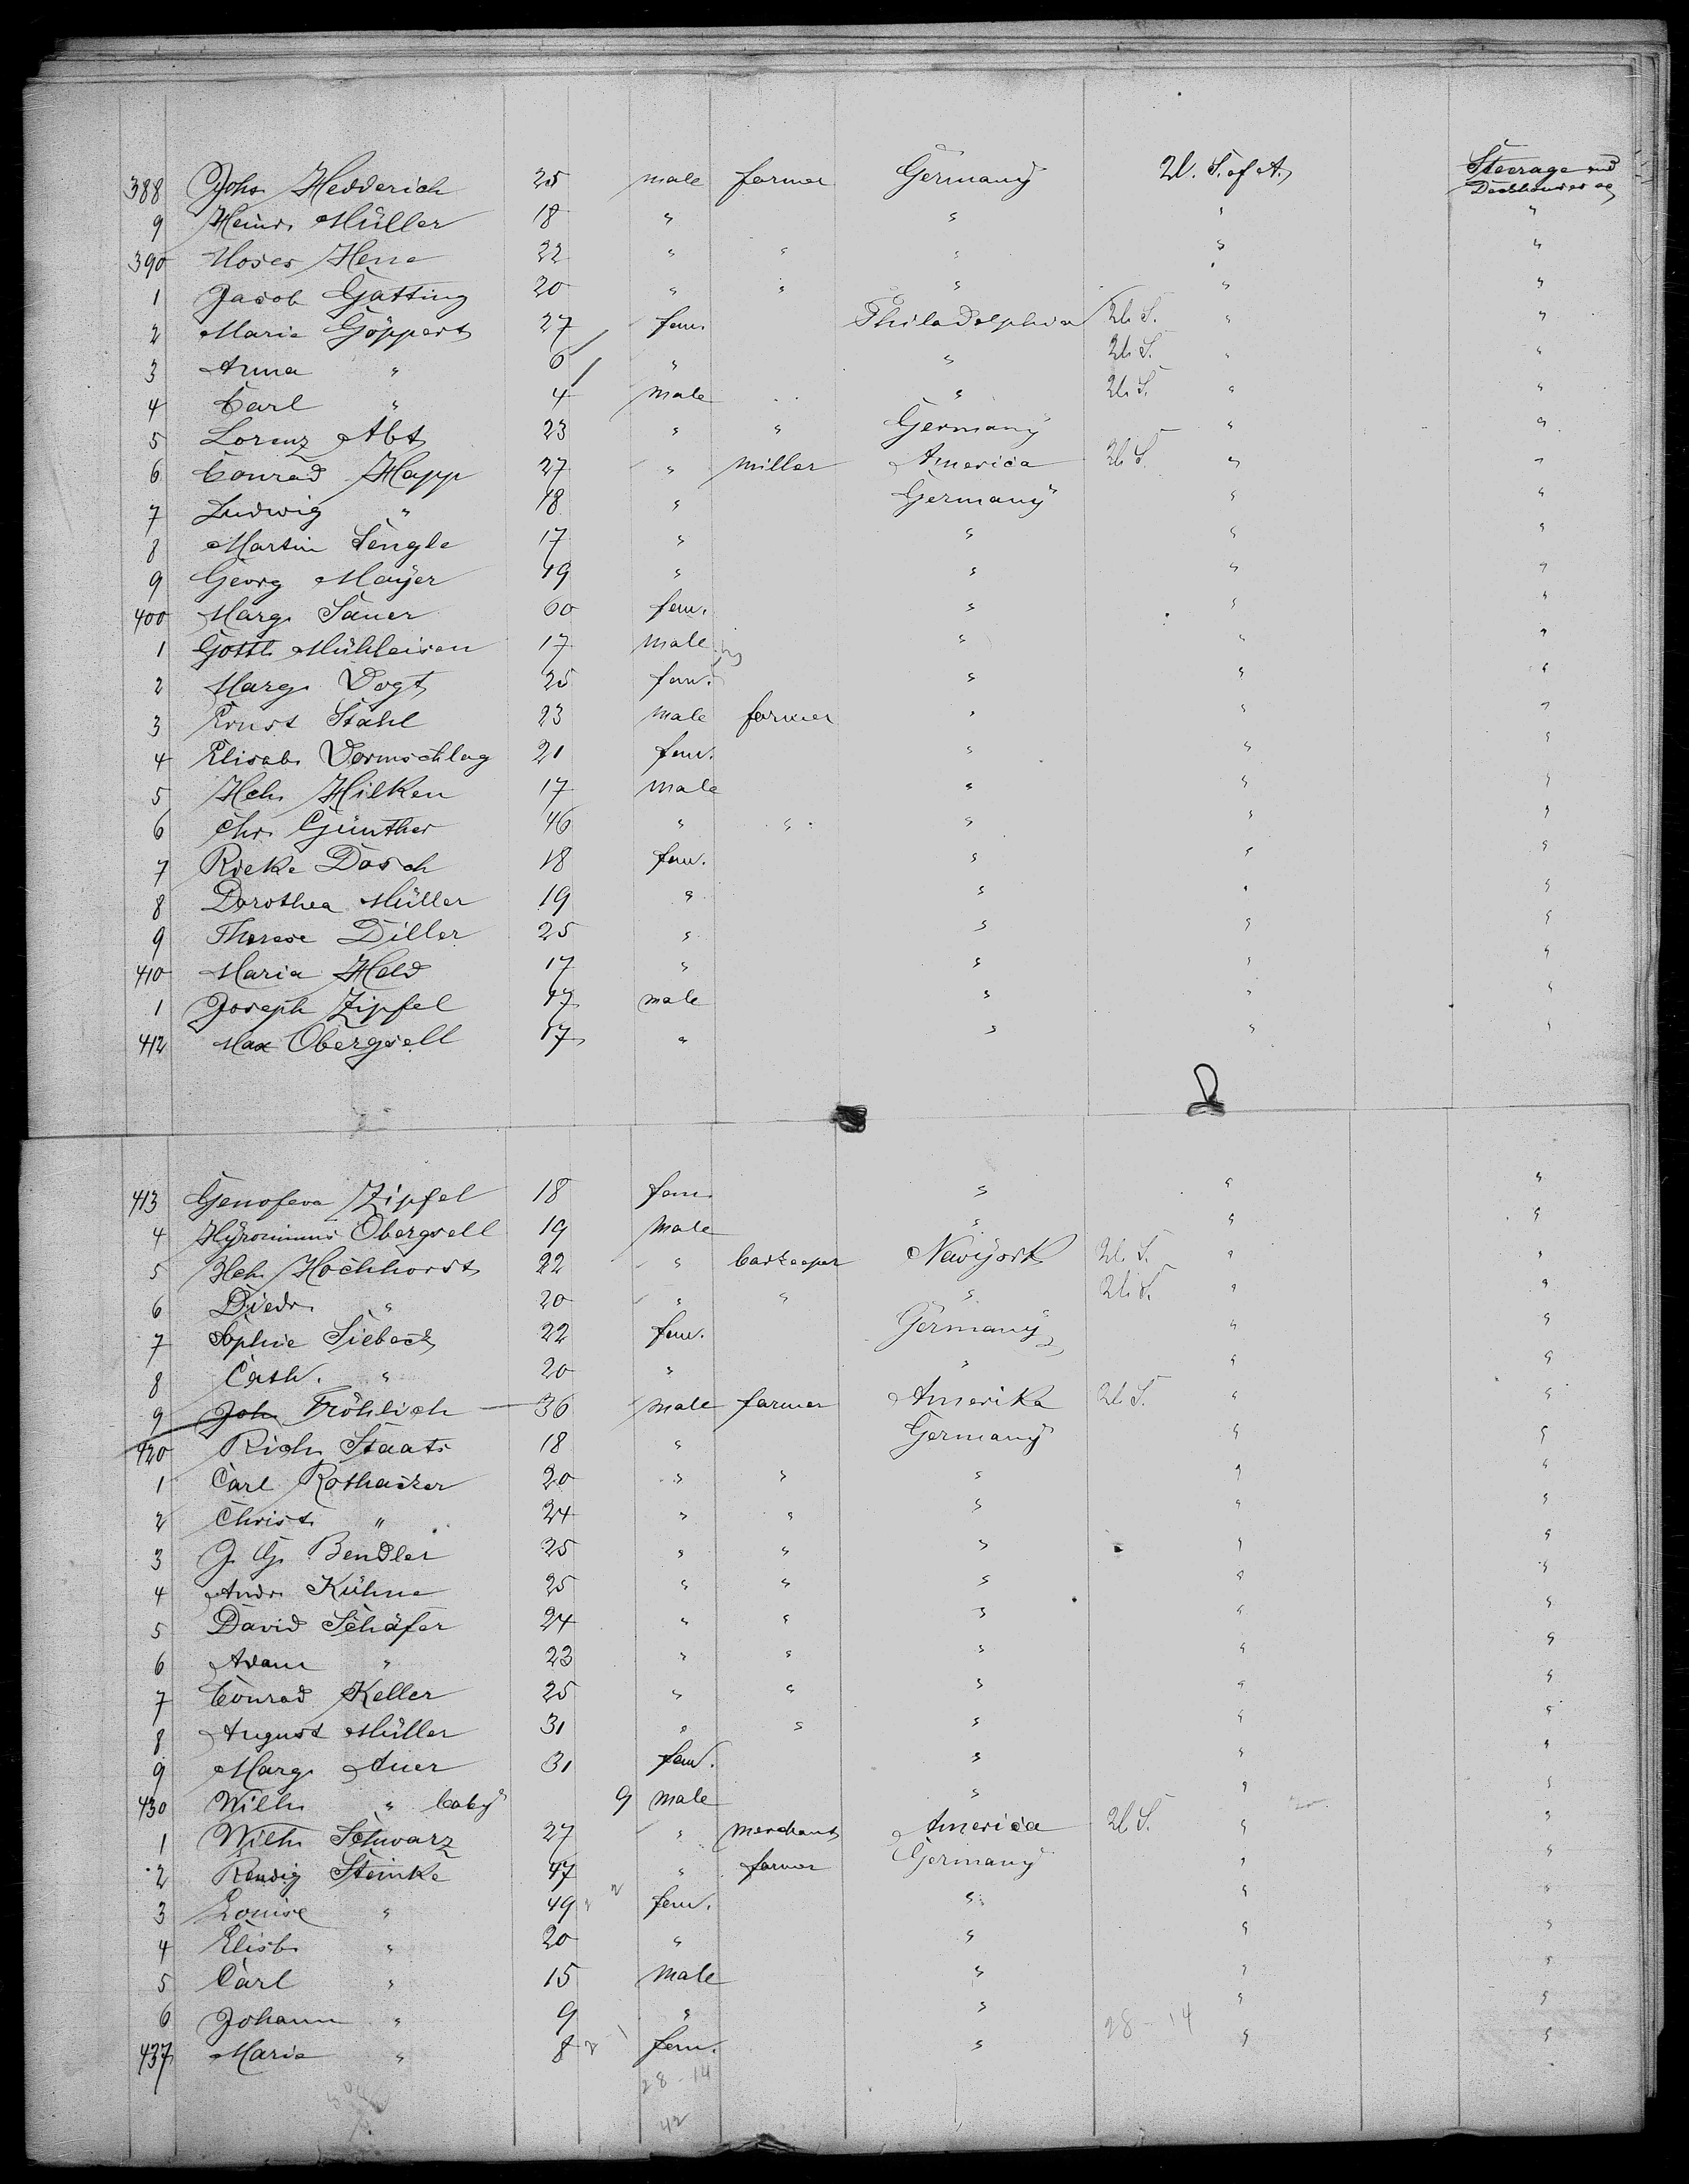 388 Johs Hedderich 25 male farmer Germany U. S. of A. Steerage and
Deckhouses
9 Heinr. Müller 18 " " " "
390 Moses Hene 22 " " " " "
1 Jacob Gatting 20 " " " " "
2 Maria Göppert 27 fem. Philadelphia U. S. " "
3 Anna " 6 " " U. S. " "
4 Carl " 4 male " U. S. " "
5 Lorenz Abt 23 " " Germany " "
6 Conrad Happ 27 " miller America U. S. " "
7 Ludwig " 18 " Germany " "
8 Martin Sengle 17 " " " "
9 Georg Mayer 19 " " " "
400 Marg. Sauer 60 fem. " " "
1 Gottl. Mühleisen 17 male " " "
2 Marg. Vogt 25 fem. " " "
3 Ernst Stahl 23 male farmer " " "
4 Elisab. Dormschlag 21 fem. " " "
5 Hch. Hilken 17 male " " "
6 Chr. Günther 46 " " " " "
7 Rieke Dosch 18 fem. " " "
8 Dorothea Müller 19 " " " "
9 Therese Diller 25 " " " "
410 Maria Held 17 " " " "
1 Joseph Zipfel 17 male " " "
412 Max Obergsell 17 " " " "
413 Genofeva Zipfel 18 fem " " "
4 Hyronimus Obergsell 19 male " " "
5 Hch. Hochhorst 22 " barkeeper Newyork U. S. " "
6 Diedr. " 20 " " " U. S. " "
7 Sophie Siebeck 22 fem. Germany " "
8 Cath. " 20 " " " "
9 Joh. Fröhlich 36 male farmer Amerika U. S. " "
420 Rich. Staats 18 " Germany " "
1 Carl Rothacker 20 " " " " "
2 Christ. " 24 " " " " "
3 J. G. Bendler 25 " " " " "
4 Andr. Kühne 25 " " " " "
5 David Schäfer 24 " " " " "
6 Adam " 23 " " " " "
7 Conrad Keller 25 " " " " "
8 August Müller 31 " " " " "
9 Marg. Auer 31 fem. " " "
430 Wilh. " baby 9 male " " "
1 Wilh. Schwarz 27 " merchant America U. S. " "
2 Steinke 47 " farmer Germany " "
3 Louise " 49 fem. " " "
4 Elisb. " 20 " " " "
5 Carl " 15 male " " "
6 Johann " 9 " " " "
437 Maria " 8 fem. " 28-14 " "
28-14
42